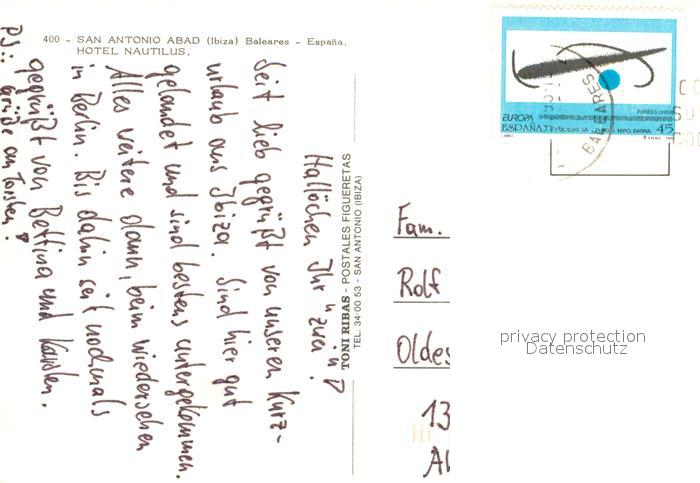 400 - SAN ANTONIO ABAD (Ibiza) Baleares - España.
HOTEL NAUTILUS.
Hallöchen Ihr "zwei"!
Seit lieb gegrüßt von unseren Kurz-
urlaub aus Ibiza. Sind hier gut
gelandet und sind bestens untergekommen.
Alles weitere dann, beim wiedersehen
in Berlin. Bis dahin seit nochmals
gegrüßt von Bettina und Karsten.
PS.: Grüße an Torsten!
TONI RIBAS - POSTALES FIGUERETAS
TEL: 34 00 53 - SAN ANTONIO (IBIZA)
FUSEES (1959)
EUROPA
ESPAÑA
FUND. J. MIRO. BARNA
45
BALEARES
Fam.
Rolf
Oldes
13
privacy protection
Datenschutz